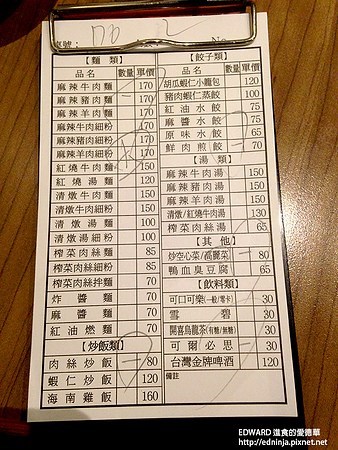 桌號：
No
【麵 類】
品名 數量 單價
麻辣牛肉麵 170
麻辣豬肉麵 170
麻辣羊肉麵 170
麻辣牛肉細粉 170
麻辣豬肉細粉 170
麻辣羊肉細粉 170
紅燒牛肉麵 150
紅燒湯麵 120
清燉牛肉麵 150
清燉牛肉細粉 150
清燉湯麵 100
清燉湯細粉 100
榨菜肉絲麵 85
榨菜肉絲細粉 85
榨菜肉絲拌麵 70
炸醬麵 70
麻醬麵 70
紅油燃麵 70
【炒飯類】
肉絲炒飯 80
蝦仁炒飯 120
海南雞飯 160
【餃子類】
品名 數量 單價
胡瓜蝦仁小籠包 120
豬肉蝦仁蒸餃 100
紅油水餃 75
麻醬水餃 75
原味水餃 65
鮮肉煎餃 70
【湯 類】
麻辣牛肉湯 150
麻辣豬肉湯 150
麻辣羊肉湯 150
清燉/紅燒牛肉湯 130
榨菜肉絲湯 65
【其 他】
炒空心菜/高麗菜 80
鴨血臭豆腐 65
【飲料類】
可口可樂(一般/零卡) 30
雪碧 30
開喜烏龍茶(有糖/無糖) 30
可爾必思 30
台灣金牌啤酒 120
備註
EDWARD 進食的愛德華
http://edninja.pixnet.net